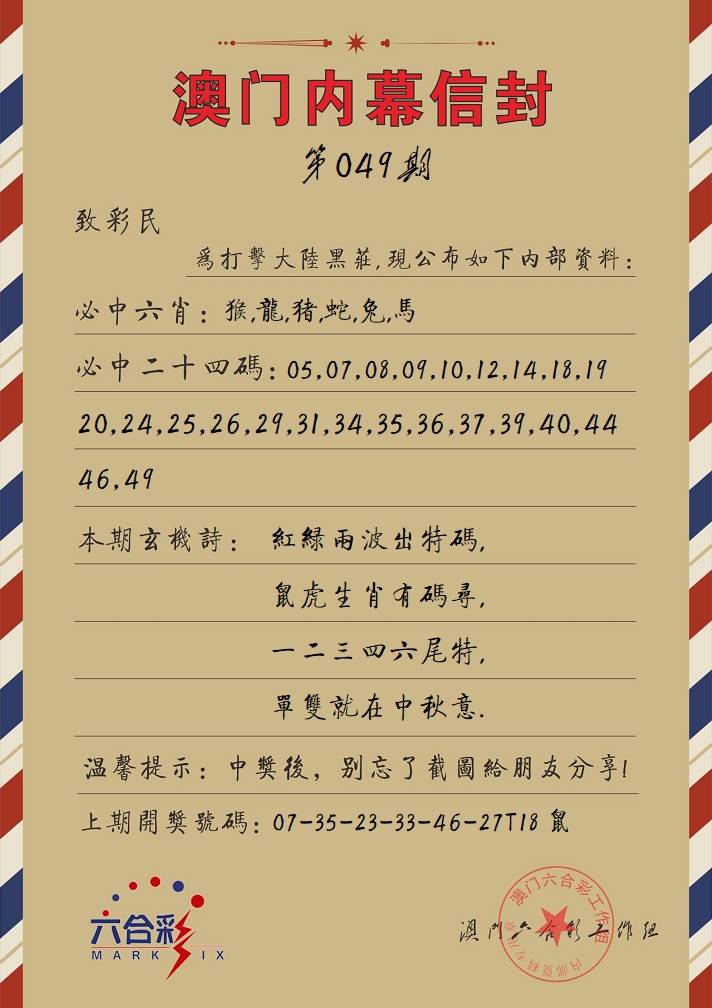 澳门内幕信封
第049期
致彩民
爲打擊大陸黑莊,現公布如下内部資料:
必中六肖: 猴,龍,猪,蛇,兔,馬
必中二十四碼: 05,07,08,09,10,12,14,18,19
20,24,25,26,29,31,34,35,36,37,39,40,44
46,49
本期玄機詩: 紅緑兩波出特碼,
鼠虎生肖有碼尋,
一二三四六尾特,
單雙就在中秋意.
温馨提示: 中獎後, 别忘了截圖給朋友分享!
上期開獎號碼: 07-35-23-33-46-27T18 鼠
六合彩
MARK SIX
澳门六合彩工作组
澳门六合彩工作组
内部资料专用章